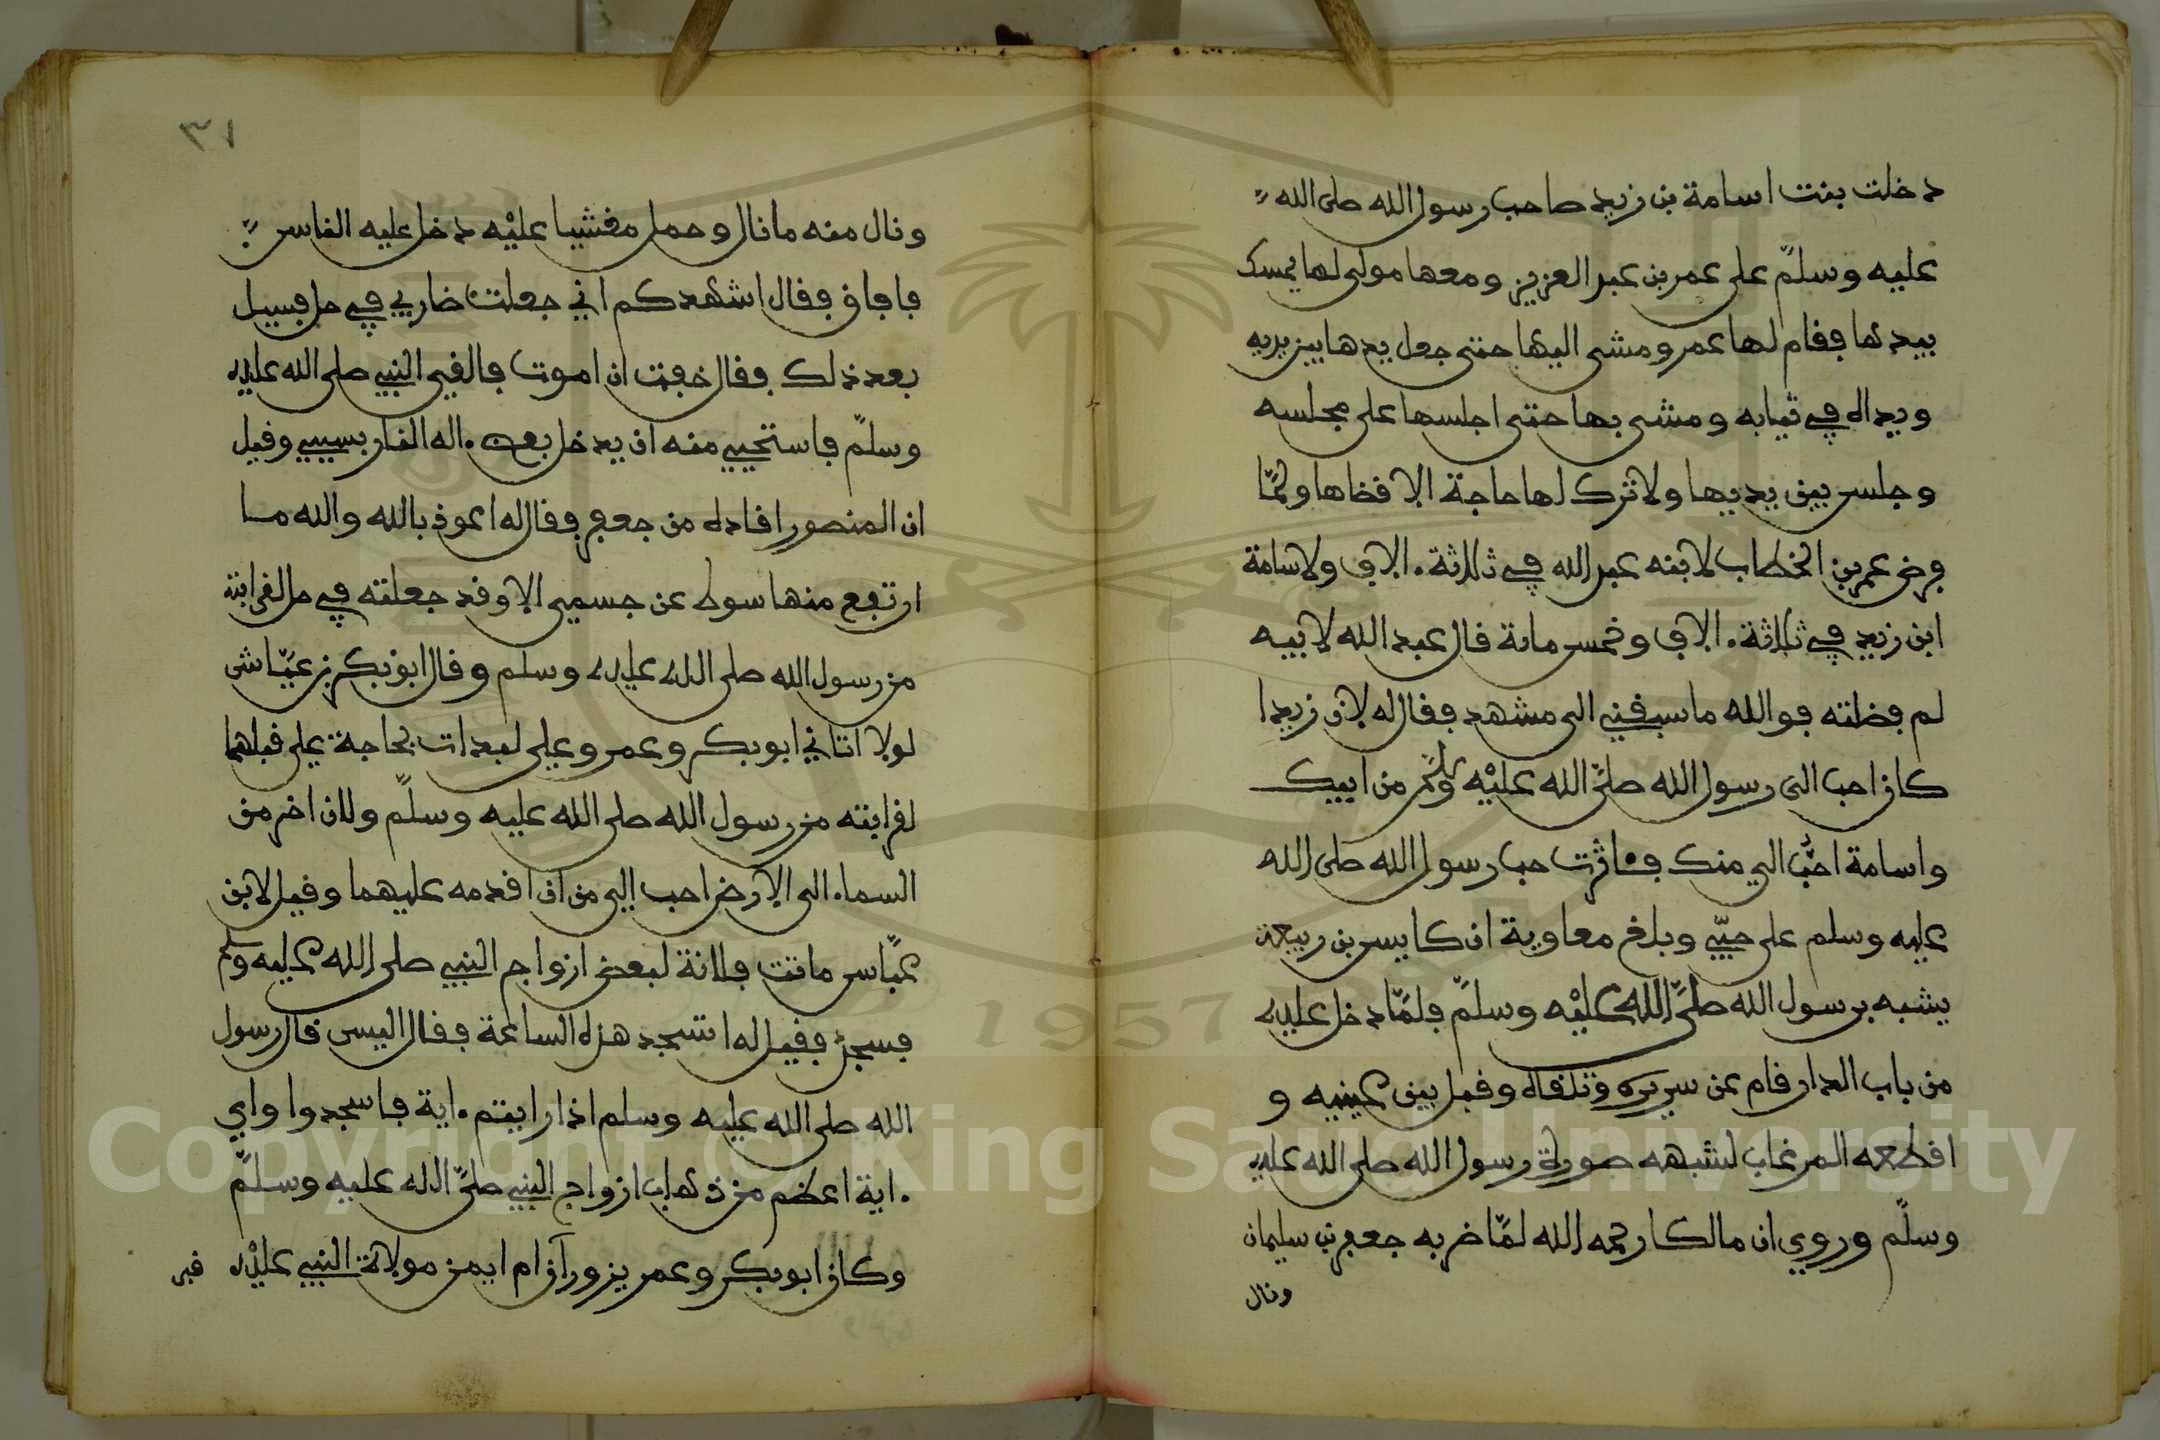 دخلت بنت اسامة بن زيد صاحب رسول الله صلى الله
عليه وسلم على عمر بن عبد العزيز ومعها مولى لها يمسك
بيدها فقام لها عمر ومشى اليها حتى جعل يدها بين يديه
ويداه في ثيابه ومشى بها حتى اجلسها على مجلسه
وجلس بين يديها ولا ترك لها حاجة الا قضاها ولما
فرض عمر بن الخطاب لابنه عبد الله في ثلاثة ءالاف ولاسامة
ابن زيد في ثلاثة ءالاف وخمس مائة قال عبد الله لابيه
لم فضلته فوالله ما سبقني الى مشهد فقال له لان زيدا
كان احب الى رسول الله صلى الله عليه وسلم من ابيك
واسامة احب اليه منك فئاثرت حب رسول الله صلى الله
عليه وسلم على حبي وبلغ معاوية ان كابس بن ربيعة
يشبه برسول الله صلى الله عليه وسلم فلما دخل عليه
من باب الدار قام عن سريره وتلقاه وقبل بين عينيه و
اقطعه المرغاب لشبهه صورة رسول الله صلى الله عليه
وسلم وروي ان مالكا رحمه الله لما ضربه جعفر بن سليمان
ونال
٣١
ونال منه ما نال وحمل مغشيا عليه دخل عليه الناس
فافاق فقال اشهدكم اني جعلت ضاربي في حل فسيل
بعد ذلك فقال خفت ان اموت فالقى النبي صلى الله عليه
وسلم فاستحيي منه ان يدخل بعض ءاله النار بسببي وقيل
ان المنصور اقاده من جعفر فقال له اعوذ بالله والله ما
ارتفع منها سوط عن جسمي الا وقد جعلته في حل لقرابته
من رسول الله صلى الله عليه وسلم وقال ابو بكر بن عياش
لولا اتاني ابو بكر وعمر وعلي لبدات بحاجة علي قبلهما
لقرابته من رسول الله صلى الله عليه وسلم ولان اخر من
السماء الى الارض احب الي من ان اقدمه عليهما وقيل لابن
عباس ماتت فلانة لبعض ازواج النبي صلى الله عليه وسلم
فسجد فقيل له اتسجد هذه الساعة فقال اليس قال رسول
الله صلى الله عليه وسلم اذا رايتم ءاية فاسجدوا واي
ءاية اعظم من ذهاب ازواج النبي صلى الله عليه وسلم
وكان ابو بكر وعمر يزوران ام ايمن مولاة النبي عليه
1957
Copyright © King Saud University